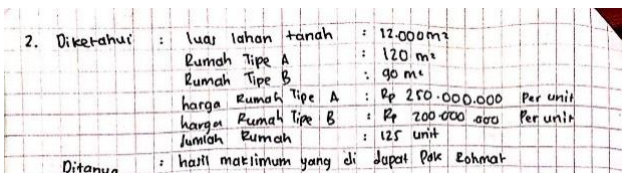 2. Diketahui : luas lahan tanah : 12.000 m²
Rumah Tipe A : 120 m²
Rumah Tipe B : 90 m²
harga Rumah Tipe A : Rp 250.000.000 Per unit
harga Rumah Tipe B : Rp 200.000.000 Per unit
Jumlah Rumah : 125 unit
Ditanya : hasil maksimum yang di dapat Pak Rohmat